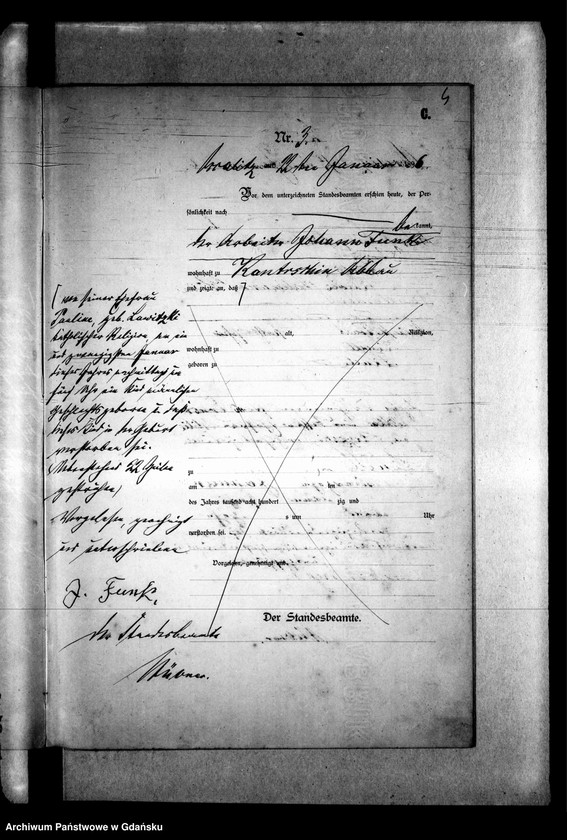 C.
Nr. 3.
am 22ten Januar 6.
Vor dem unterzeichneten Standesbeamten erschien heute, der Per-
sönlichkeit nach
be kannt,
der Arbeiter Johann Funk
wohnhaft zu
und zeigte an, daß
von seiner Ehefrau
Pauline, geb.
katholischer Religion, am ein
und zwanzigsten Januar
dieses Jahres Nachmittag um
fünf Uhr, ein Kind männlichen
Geschlechts geboren u. daß
dieses Kind in der Geburt
verstorben sei.
22 Zeilen
gestrichen
Vorgelesen, genehmigt
und unterschrieben
J. Funk.
Der Standesbeamte
alt, Religion,
wohnhaft zu
geboren zu
zu
am ten
des Jahres tausend acht hundert zig und
um Uhr
verstorben sei.
Vorgelesen, genehmigt und
Der Standesbeamte.
Archiwum Państwowe w Gdańsku